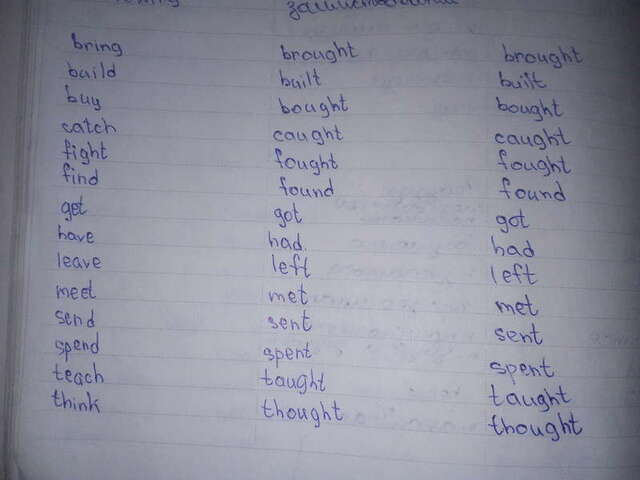 bring brought brought
build built built
buy bought bought
catch caught caught
fight fought fought
find found found
get got got
have had had
leave left left
meet met met
send sent sent
spend spent spent
teach taught taught
think thought thought